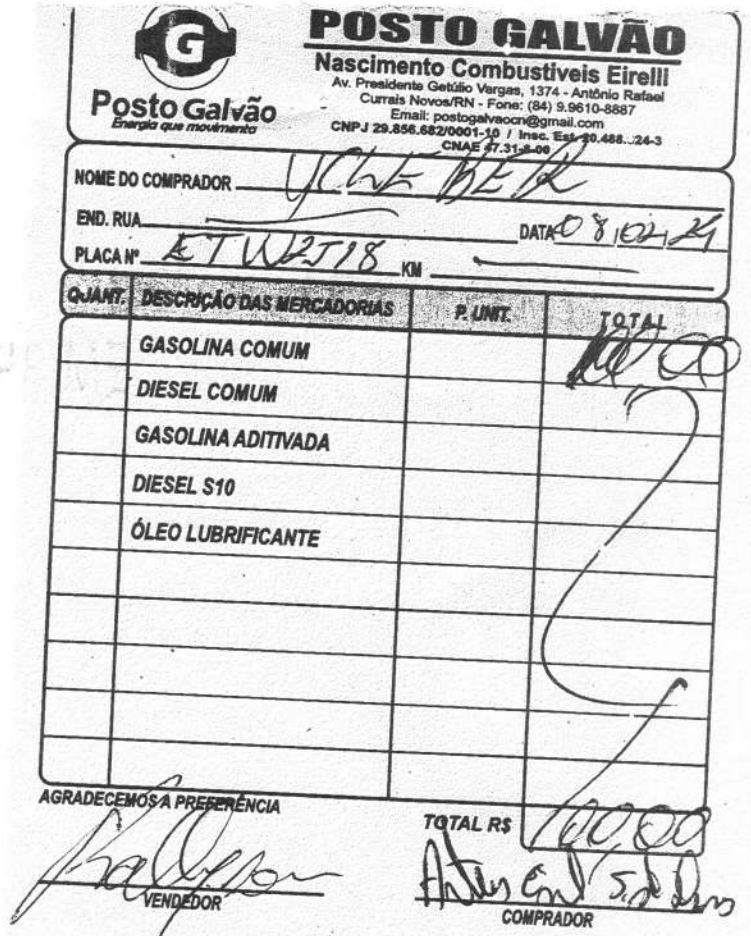 G
Posto Galvão
Energia que movimenta
POSTO GALVÃO
Nascimento Combustiveis Eirelli
Av. Presidente Getúlio Vargas, 1374 - Antônio Rafael
Currais Novos/RN - Fone: (84) 9.9610-8887
Email: postogalvaocn@gmail.com
CNPJ 29.856.682/0001-10 / Insc. Est. 20.488...24-3
CNAE 47.31-8-00
NOME DO COMPRADOR
END. RUA DATA 08,02,24
PLACA Nº KM
QUANT. DESCRIÇÃO DAS MERCADORIAS P. UNIT. TOTAL
GASOLINA COMUM
DIESEL COMUM
GASOLINA ADITIVADA
DIESEL S10
ÓLEO LUBRIFICANTE
AGRADECEMOS A PREFERÊNCIA
TOTAL R$ 100,00
VENDEDOR
COMPRADOR